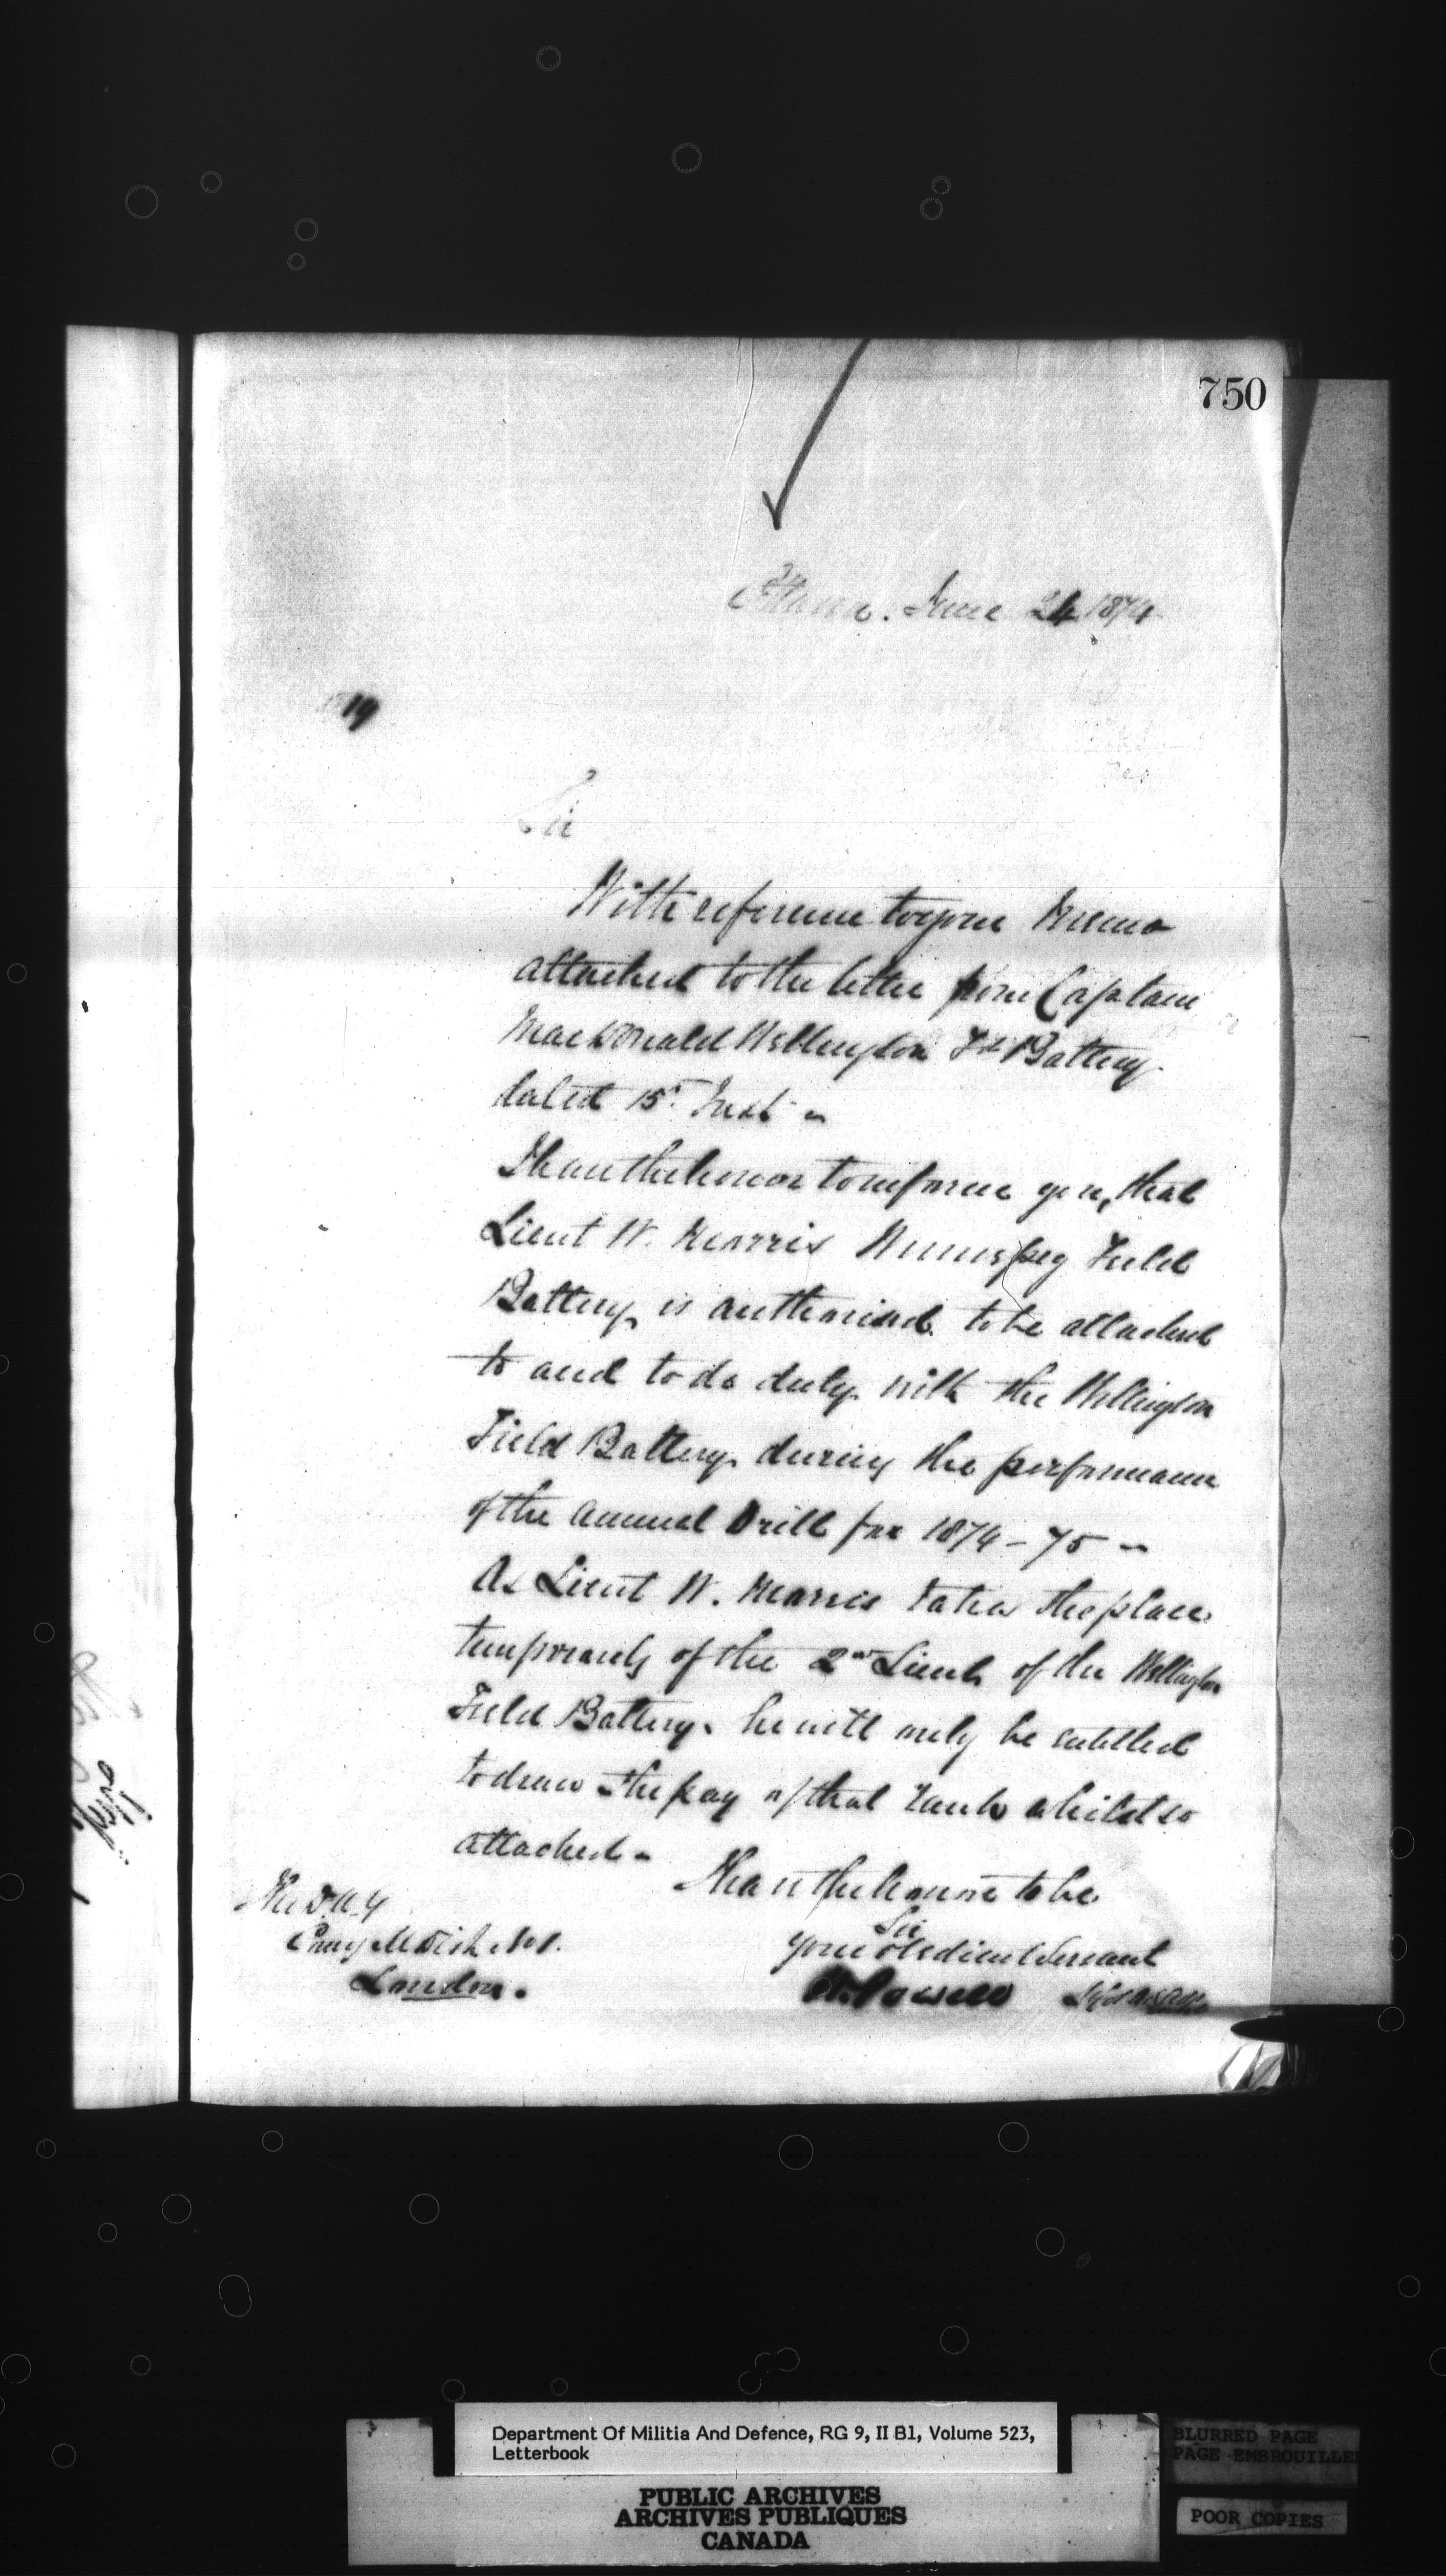 750
Ottawa. June 24 1874
19
Sir
With reference to your Memo
attached to the letter from Captain
MacDonald Wellington Fd Battery
dated 15th Inst -
I have the honor to inform you, that
Lieut W. Morris Winnipeg Field
Battery is authorised to be attached
to and to do duty with the Wellington
Field Battery during the performance
of the annual Drill for 1874-75 -
As Lieut W. Morris takes the place
temporarily of the 2nd Lieut of the Wellington
Field Battery. he will only be entitled
to draw the pay of that rank whilst so
attached -
I have the honor to be
Sir
your obedient Servant
W. Powell
The D.A.G
Comg M Dist. No 1.
London.
Department Of Militia And Defence, RG 9, II B1, Volume 523,
Letterbook
PUBLIC ARCHIVES
ARCHIVES PUBLIQUES
CANADA
BLURRED PAGE
PAGE EMBROUILLE
POOR COPIES